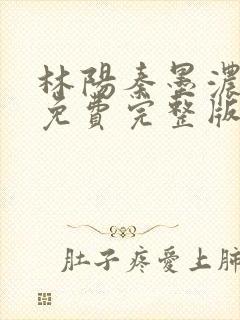 林陽秦墨濃
免費完整版
肚子疼愛上肺